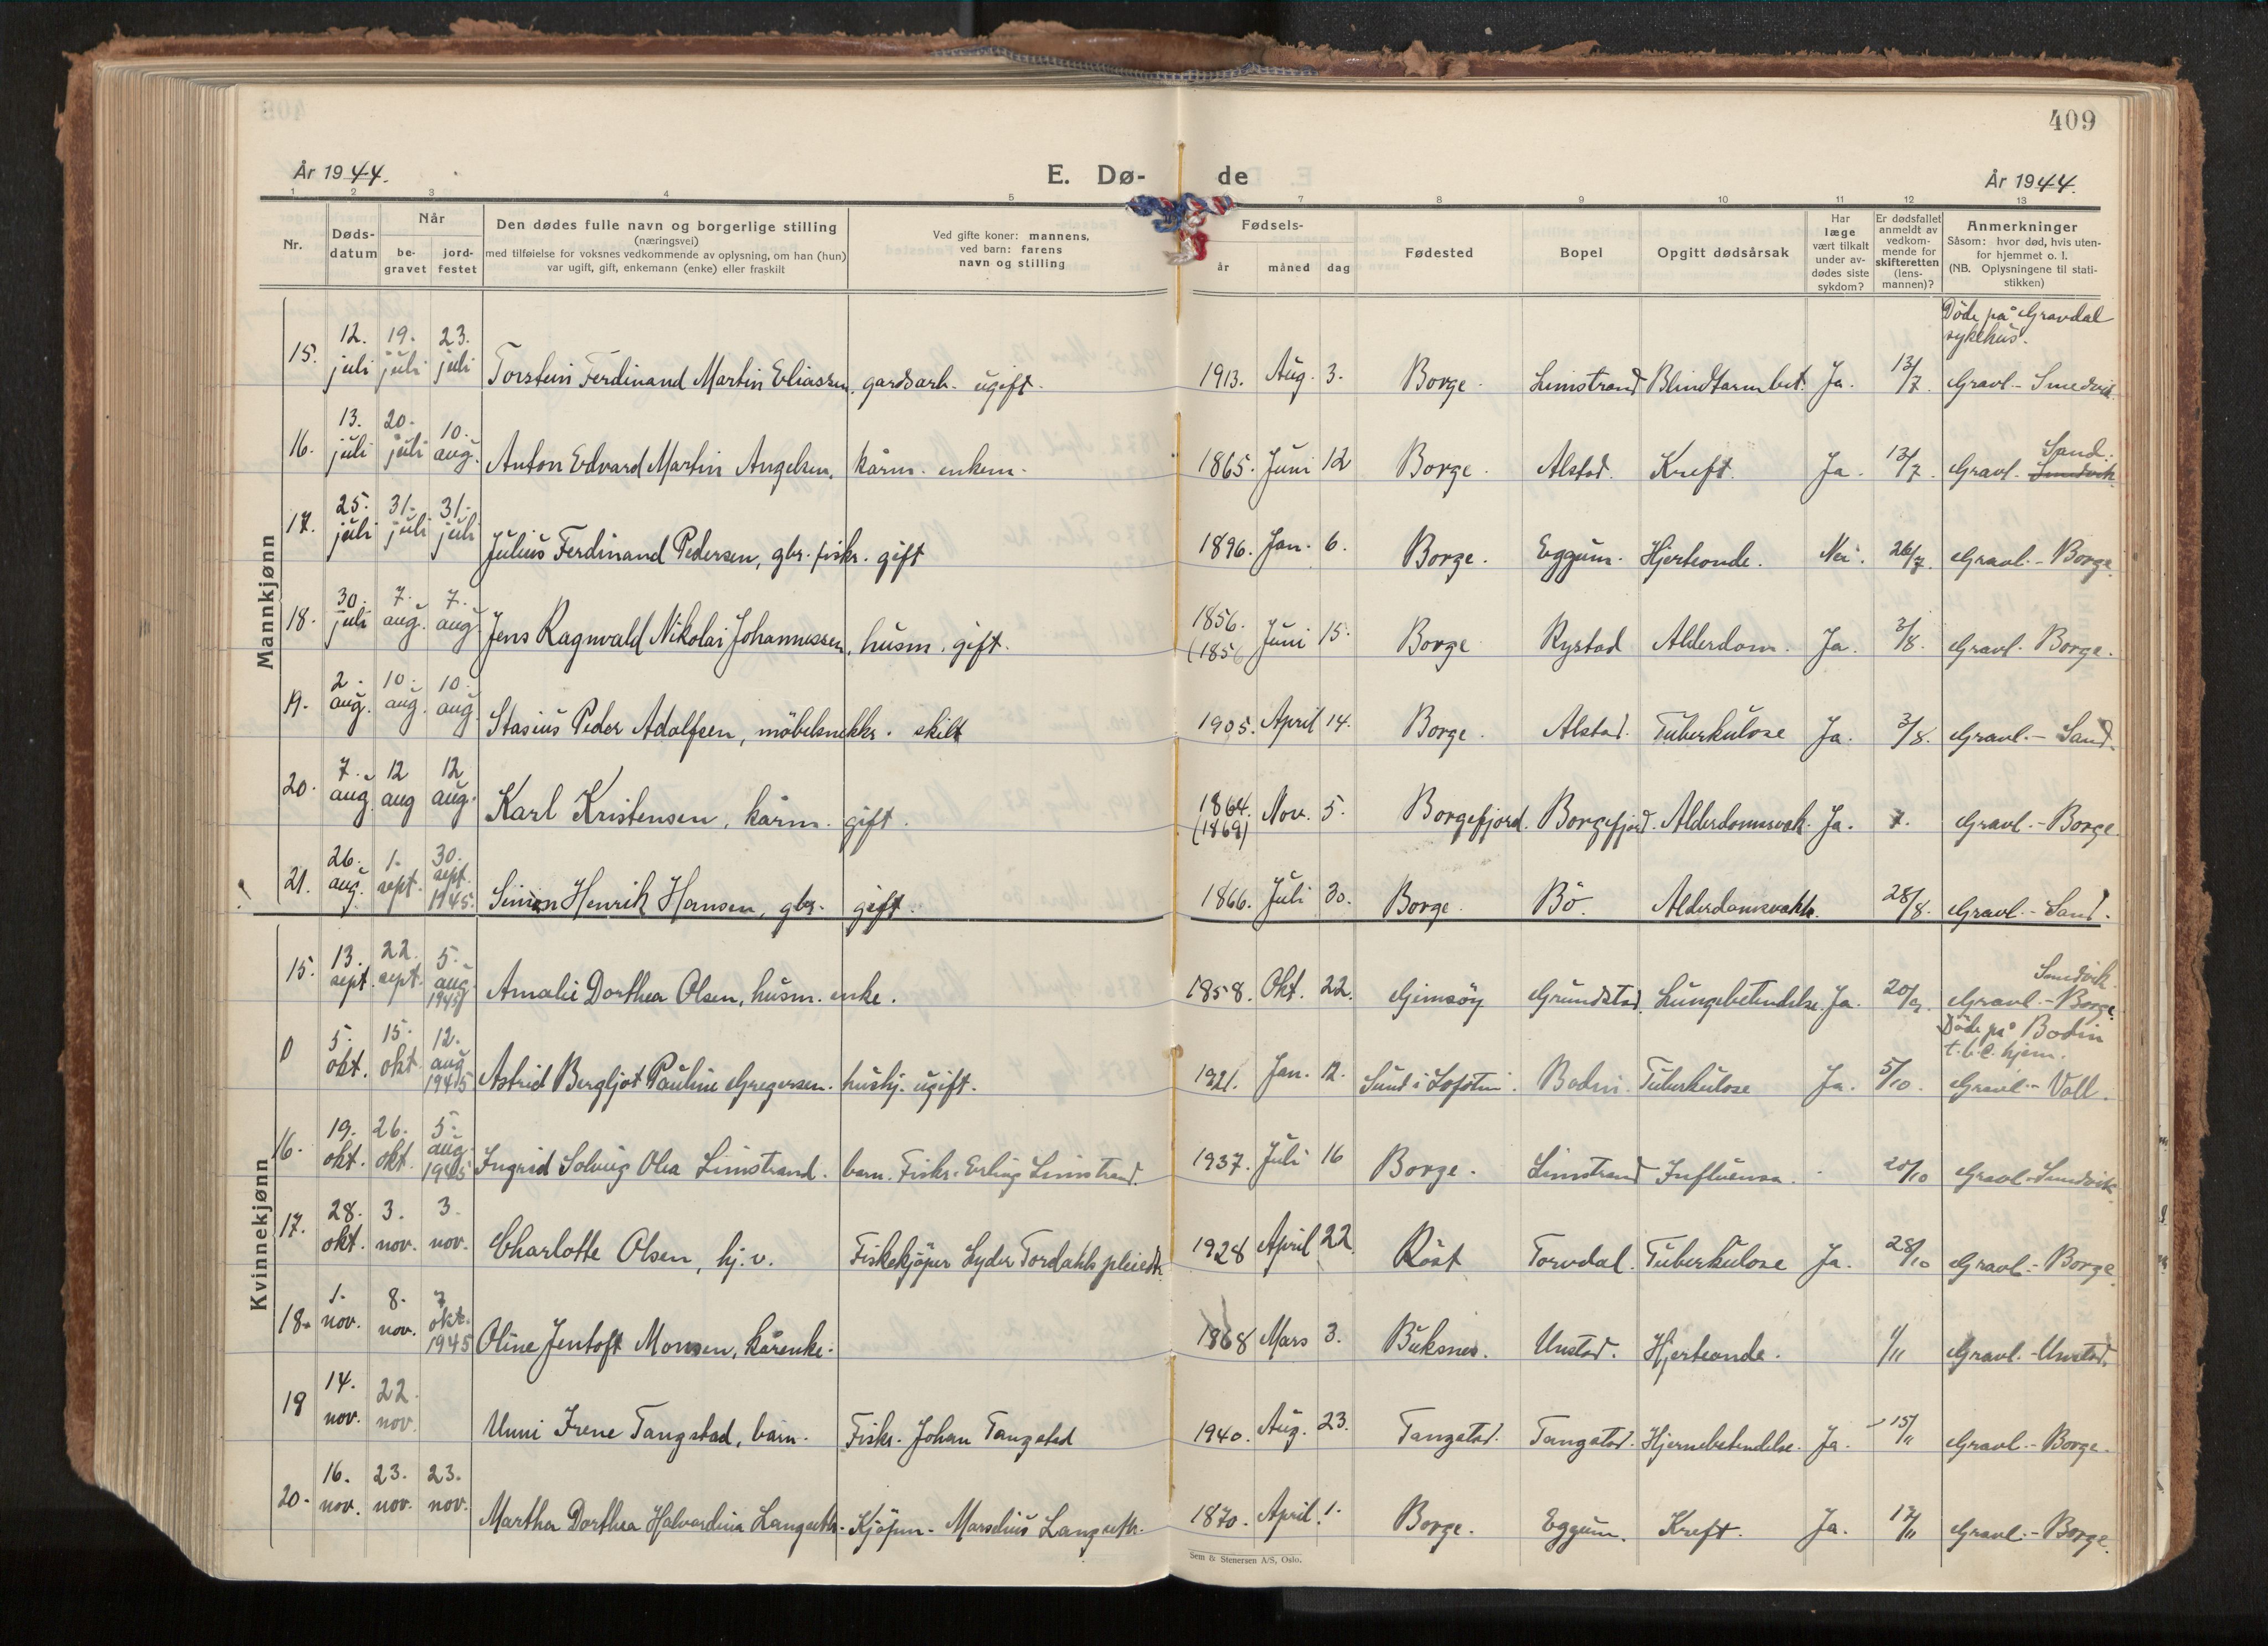 409
År 1944.
E. Dø-
de
År 1944.
1 2 3 4 5 7 8 9 10 11 12 13
Nr.
Døds-
datum
Når
be-
gravet
jord-
festet
Den dødes fulle navn og borgerlige stilling
(næringsvei)
med tilføielse for voksnes vedkommende av oplysning, om han (hun)
var ugift, gift, enkemann (enke) eller fraskilt
Ved gifte koner: mannens,
ved barn: farens
navn og stilling
Fødsels-
år måned dag
Fødested
Bopel
Opgitt dødsårsak
Har
læge
vært tilkalt
under av-
dødes siste
sykdom?
Er dødsfallet
anmeldt av
vedkom-
mende for
skifteretten
(lens-
mannen)?
Anmerkninger
Såsom: hvor død, hvis uten-
for hjemmet o. l.
(NB. Oplysningene til stati-
stikken)
Mannkjønn
Døde på Gravdal
sykehus.
15. 12. juli 19. juli 23. juli Torstein Ferdinand Martin Eliassen, gardsarb. ugift. 1913. Aug. 3. Borge. Limstrand Blindtarmbet. Ja. 13/7 Gravl. - Smedvik.
Sand.
16. 13. juli 20. juli 10. aug. Anton Edvard Martin Angelsen, kårm. enkem. 1865. Juni 12 Borge. Alstad. Kreft. Ja. 13/7. Gravl. -
17. 25. juli 31. juli 31. juli Julius Ferdinand Pedersen, gbr. fiskr. gift 1896. Jan. 6. Borge. Eggum. Hjerteonde. Nei. 26/7. Gravl. - Borge.
18. 30. juli 7. aug. 7. aug. Jens Ragnvald Nikolai Johannessen, husm. gift. 1856. (1856 Juni 15. Borge Rystad Alderdom. Ja. 3/8. Gravl. Borge.
19. 2. aug. 10. aug. 10. aug. Stasius Peder Adolfsen, möbelsnekkr. skilt 1905. April 14. Borge. Alstad. Tuberkulose Ja. 3/8. Gravl. - Sand.
20. 7. aug. 12 aug 12 aug. Karl Kristensen, kårm. gift. 1864. (1869) Nov. 5. Borgefjord. Borgefjord. Alderdomsvak. Ja. Gravl. - Borge.
21. 26. aug. 1. sept. 30. sept. 1945. Simon Henrik Hansen, gbr. gift. 1866. Juli 30. Borge. Bö. Alderdomsvakh. 28/8. Gravl. - Sand.
Kvinnekjønn
Smedvik.
15. 13. sept. 22. sept. 5. aug. 1945 Amalie Dorthea Olsen, husm. enke. 1858. Okt. 22. Gimsöy Grundstad. Lungebetendelse. Ja. 20/9. Gravl. - Borge.
Döde på Bodin
t.b.c. hjem.
0 5. okt. 15. okt 12. aug 1945 Astrid Bergljot Pauline Gregersen. hushj. ugift. 1921. Jan. 12. Sund i Lofoten. Bodin. Tuberkulose Ja. 5/10. Gravl. - Voll.
16. 19. okt. 26. okt. 5. aug 1945 Ingrid Solveig Olea Limstrand. barn. Fiskr. Erling Limstrand. 1937. Juli 16 Borge. Limstrand Influensa. 20/10 Gravl. - Smedvik
17. 28. okt. 3. nov. 3. nov. Charlotte Olsen, hj.v. Fiskekjöper Lyder Tordahls pleiedtr. 1928 April 22. Röst Torvdal. Tuberkulose Ja. 28/10 Gravl. - Borge
18. 1. nov. 8. nov. 7 okt. 1945 Oline Jentoft Monsen, kårenke. 1868 Mars 3. Buksnes. Unstad. Hjerteonde. 1/11 Gravl. - Unstad.
19 14. nov. 22. nov. Unni Irene Tangstad, barn. Fiskr. Johan Tangstad 1940. Aug. 23. Tangstad. Tangstad. Hjernebetendelse. Ja. 15/11 Gravl. - Borge.
20. 16. nov. 23. nov. 23. nov. Martha Dorthea Halvardina Langseth. Kjöpm. Marselius Langseth. 1870. April 1. Borge. Eggum. Kreft. Ja. 17/11 Gravl. - Borge.
Sem & Stenersen A/S, Oslo.